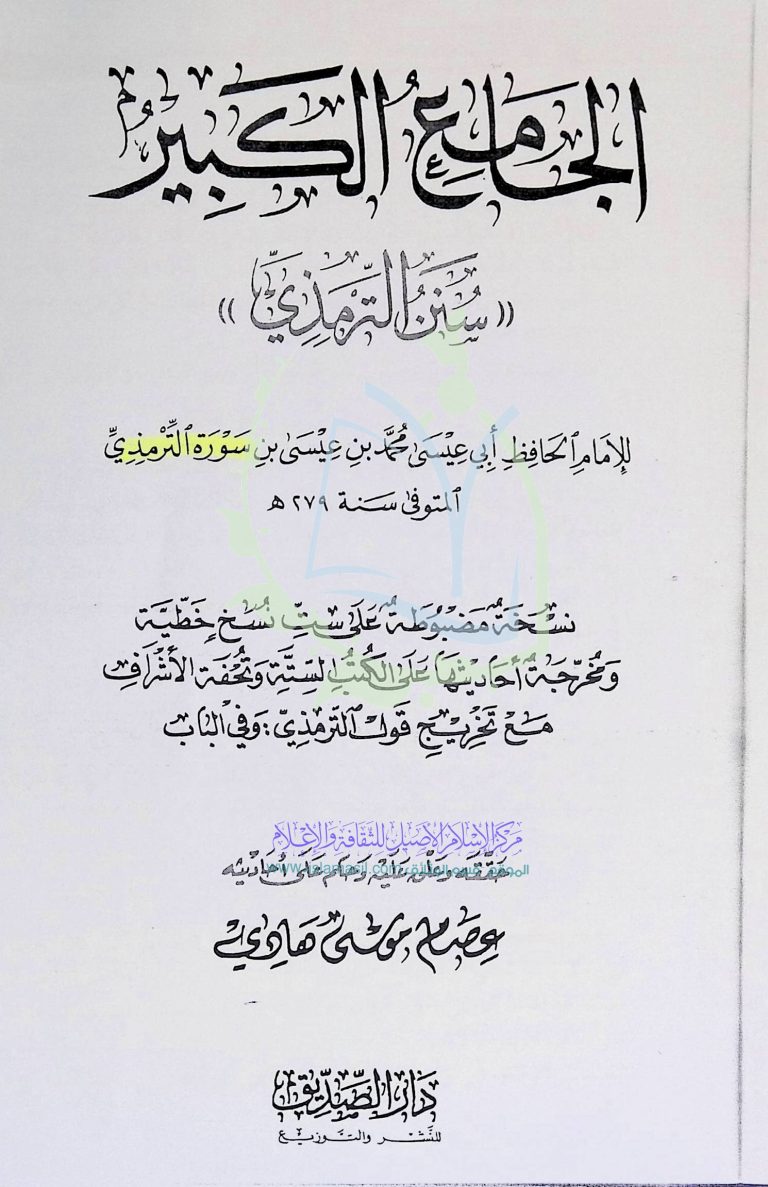 الجَامِعُ الكَبِيرُ
«سُنَنُ التِّرْمِذِيِّ»
لِلإِمَامِ الحَافِظِ أَبِي عِيسَى مُحَمَّد بنِ عِيسَى بنِ سَوْرَة التِّرْمِذِيِّ
المتوفى سَنة ٢٧٩ هـ
نُسْخَةٌ مَضْبُوطَةٌ عَلَى سِتِّ نُسَخٍ خَطِّيَّة
وَمُخَرَّجَةٌ أَحَادِيثُهَا عَلَى الكُتُبِ السِّتَّةِ وَتُحْفَةِ الأَشْرَافِ
مَعْ تَخْرِيجِ قَوْلِ التِّرْمِذِيِّ: وَفِي البَابِ
مركز الإسلام الأصيل للثقافة والإعلام
حَقَّقَهُ وَعَلَّقَ عَلَيْهِ وَحَكَمَ عَلَى أَحَادِيثِهِ
www.islamasil.com
عِصَام مُوسَى هَادِي
دَارُ الصِّدِّيقِ
للنَّشْرِ والتَّوزِيعِ